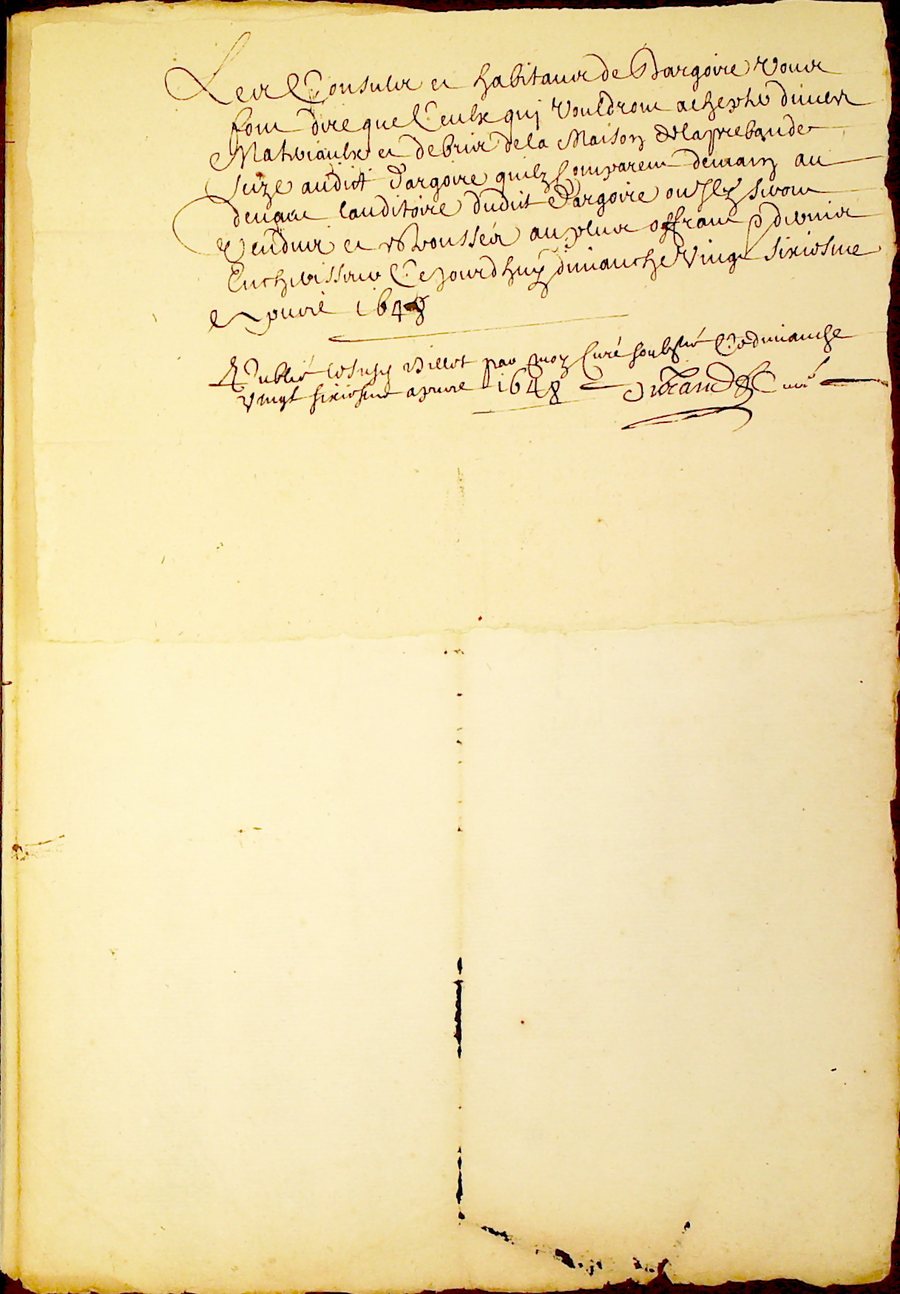 Les Consulz et habitans de Pargoire Vous
font dire que Ceulx quj Vouldront achepter diuers
Matteriaulx et debris de la Maison de la prebande
size audict Pargoire quilz Comparent demain au
deuant lauditoire dudict Pargoire ou Ilz seront
Vendus et deliurés au plus offrant & dernier
Encherisseur Ce jourdhuy dimanche Vingt sixiesme
Apuril 1648
Publié le susd Billet par moy Curé soubsigné Ce dimanche
Vingt sixiesme apuril 1648 Durand Curé